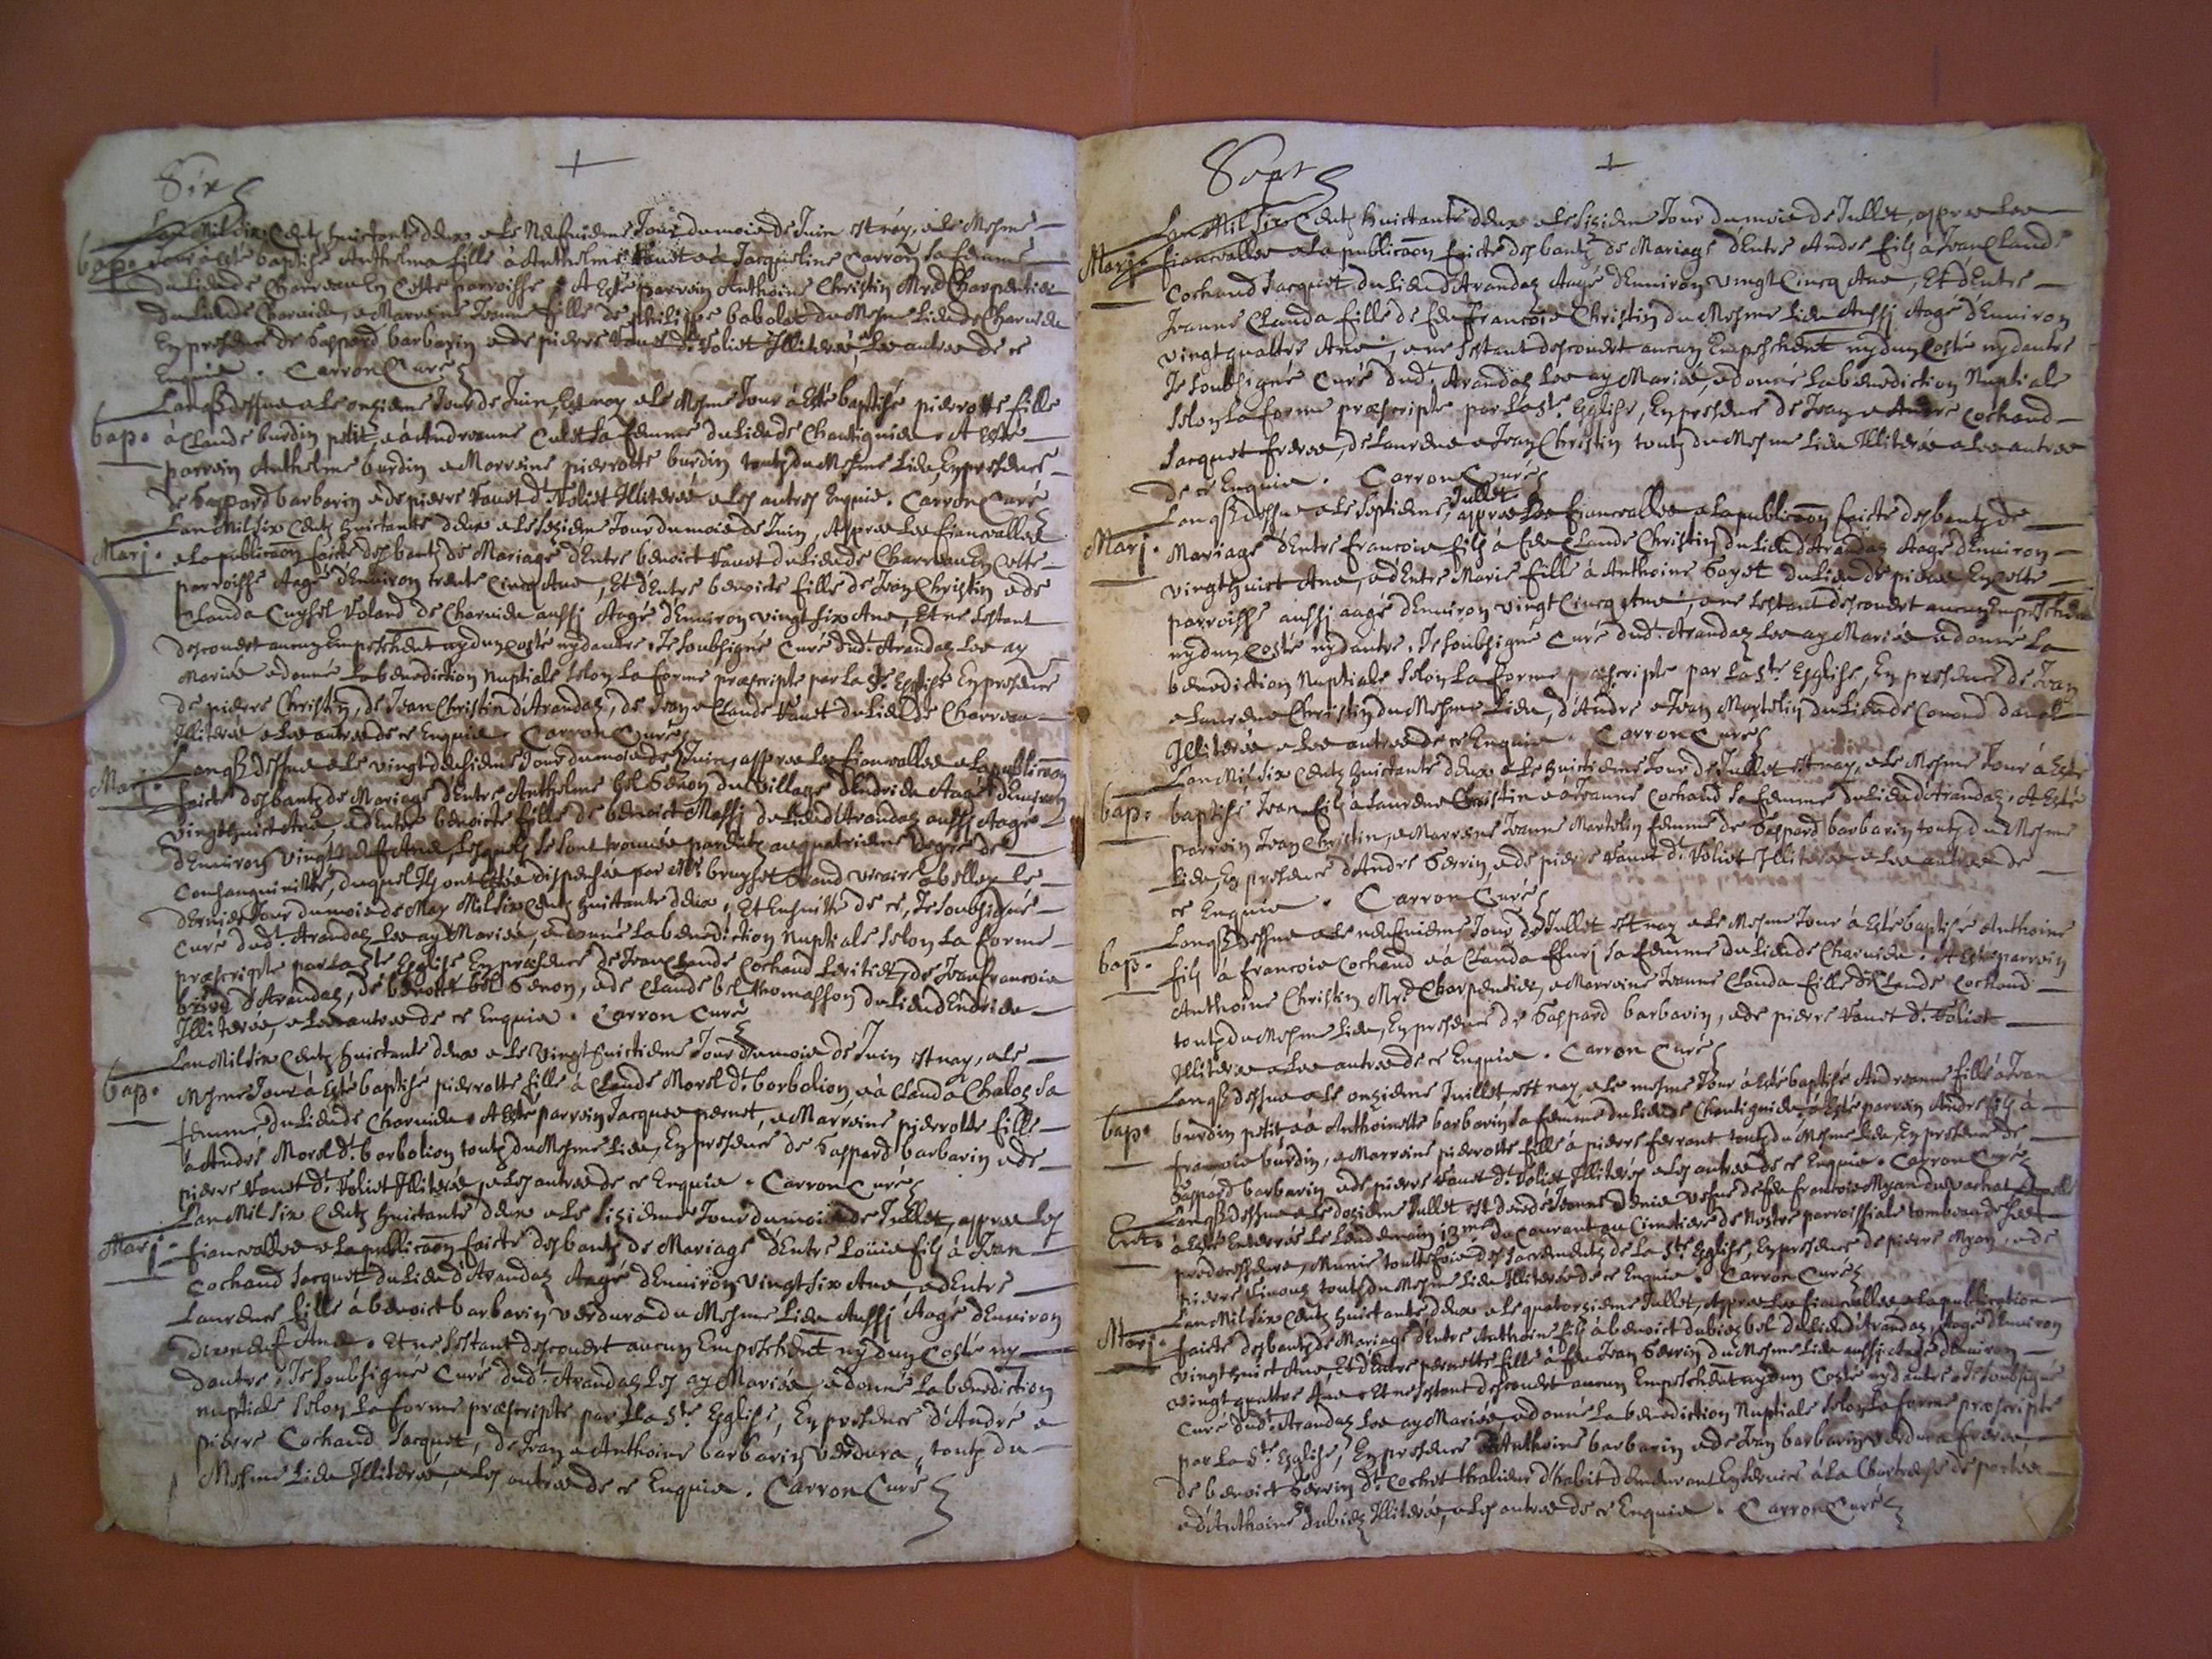 Six
Lan Mil six Centz huictante deux & le Neufuieme Jour du mois de Juin est nay, & le Mesme
bap. Jour a esté baptisé Anthelma fille à Anthelme Vanet & à Jacqueline Carron sa femme
du lieu de Charveau En Cette parroisse. A Esté parrein Anthoine Christin Mre Charpentier
du lieu de Charuieu, & Marreine Jeanne fille de philippe babolat du Mesme lieu de Charuieu
En presence de Gaspard barbarin & de pierre Vanet dt. Voliet Illiterés Les autres de ce
Enquis. Carron Curé
Lanqs dessus & le onzieme Jour de Juin, Est nay & le Mesme Jour à Esté baptisé pierrotte fille
bap. à Claude burdin petit, & à Andreanne sa femme du lieu de Chantiguieu. A Esté
parrein Anthelme burdin & Marreine pierrotte burdin toutz du Mesme Lieu, En presence
de Gaspard barbarin & de pierre Vanet dt. Voliet Illiterés & Les autres Enquis. Carron Curé
Lan Mil six Centz huictante deux & le seizieme Jour du mois de Juin, Appres Les fiancailles
Marj. & La publicaon faicte des bantz de Mariage dEntre benoict Vanet du lieu de Charveau En Cette
parroisse Aagé dEnuiron trente Cinq Ans, Et dEntre benoicte fille de Jean Christin & de
Clauda Voland de Charuieu aussj Aagé dEnuiron vingt six Ans, Et ne sestant
descouuert aucung Empeschement ny dung costé ny dautre. Je soubsigné Curé dudt. Arandaz Les ay
Mariés & donné La benediction Nuptiale selon La forme præscripte par La Ste. Esglise En presence
de pierre Christin, de Jean Christin d'Arandaz, de Jean & Claude Vanet du lieu de Charveau
Illiterés & Les autres de ce Enquis. Carron Curé
Lanqs dessus & le vingt deuxieme Jour du mois de Juin, appres Les fiancailles & La publicaon
Marj. faicte des bantz de Mariage dEntre Anthelme bel Genon du village dEndrieu Aagé dEnuiron
vingt huict Ans, & dEntre benoicte fille de benoict Massj du lieu d'Arandaz aussj Aagé
dEnuiron vingt neuf Ans, Lesquelz se sont trouués parentz au quatrieme degré de
Consanguinitté, duquel Ilz ont Estés dispensés par Mr. bruyset Grand vicaire à belley le
dernier Jour du mois de May Mil six Centz huictante deux, Et Ensuitte de ce, Je soubsigné
Curé dudt. Arandaz Les ay Mariés, & donné La benediction Nuptiale selon La forme
præscripte par La Ste Esglise En presence de Jean Claude Cochand, de Jean francois
d'Arandaz, de benoict bel Genon, & de Claude bel thomasson du lieu dEndrieu
Illiterés, & Les autres de ce Enquis. Carron Curé
Lan Mil six Centz huictante deux & le vingt huictieme Jour du mois de Juin est nay, & le
bap. Mesme Jour à Esté baptisé pierrotte fille à Claude Morel dt. borbolion, & à Clauda Chaloz sa
femme du lieu de Charuieu. A Esté parrein Jacques pernet, & Marreine pierrotte fille
à André Morel dt. borbolion toutz du Mesme Lieu, En presence de Gaspard barbarin & de
pierre Vanet dt. Voliet Illiterés & Les autres de ce Enquis. Carron Curé
Lan Mil six Centz huictante deux & le sizieme Jour du mois de Jullet, appres Les
Marj. fiancailles & La publicaon faicte des bantz de Mariage dEntre Loüis filz à Jean
Cochand Jacquet du lieu d'Arandaz Aagé dEnuiron vingt six Ans, & dEntre
Laurence fille à benoict barbarin verdura du Mesme Lieu Aussj Aagé dEnuiron
dixneuf Ans. Et ne sestant descouuert aucung Empeschement ny dung costé ny
dautre. Je soubsigné Curé dudt. Arandaz Les ay Mariés, & donné La benediction
nuptiale selon La forme præscripte par La Ste. Esglise, En presence d'André &
pierre Cochand Jacquet, de Jean & Anthoine barbarin verdura, toutz du
Mesme Lieu Illiterés, & Les autres de ce Enquis. Carron Curé
Sept
Lan Mil six Centz huictante deux & le sizieme Jour du mois de Jullet, appres Les
Marj. fiancailles & La publicaon faicte des bantz de Mariage dEntre André filz à Jean Claude
Cochand Jacquet du lieu d'Arandaz Aagé dEnuiron vingt Cinq Ans, Et dEntre
Jeanne Clauda fille de feu francois Christin du Mesme lieu Aussj Aagé dEnuiron
vingt quattre Ans, & ne sestant descouuert aucung Empeschement ny dung costé ny dautre
Je soubsigné Curé dudt. Arandaz Les ay Mariés, & donné La benediction Nuptiale
selon La forme præscripte par La Ste. Esglise, En presence de Jean & André Cochand
Jacquet freres, de Laurens & Jean Christin toutz du Mesme lieu Illiterés & Les autres
de ce Enquis. Carron Curé
Lanqs dessus & le septieme Jullet, appres Les fiancailles & La publicaon faicte des bantz de
Marj. Mariage dEntre francois filz à feu Claude Christin du lieu d'Arandaz Aagé dEnuiron
vingt huict Ans, & dEntre Marie fille à Anthoine Goyet du lieu de En cette
parroisse aussj aagé dEnuiron vingt Cinq Ans, & ne sestant descouuert aucung Empeschement
ny dung costé ny dautre, Je soubsigné Curé dudt. Arandaz Les ay Mariés & donné La
benediction Nuptiale selon La forme præscripte par La Ste. Esglise, En presence de Jean
& Laurens Christin du Mesme lieu, d'André & Jean Martelin du lieu de Conand
Illiterés & Les autres de ce Enquis. Carron Curé
Lan Mil six Centz huictante deux & le huictieme Jour de Jullet est nay, & le Mesme Jour à Esté
bap. baptisé Jean filz à Laurens Christin & à Jeanne Cochand sa femme du lieu d'Arandaz. A Esté
parrein Jean Christin, & Marreine Jeanne Martelin femme de Gaspard barbarin toutz du Mesme
Lieu, En presence d'André Gerrin, & de pierre Vanet dt. Voliet Illiterés & Les autres de
ce Enquis. Carron Curé
Lanqs dessus & le neufuieme Jour de Jullet est nay & le Mesme Jour à Esté baptisé Anthoine
bap. filz à francois Cochand & à Clauda sa femme du lieu de Charuieu. A Esté parrein
Anthoine Christin Mre Charpentier, & Marreine Jeanne Clauda fille de Claude Cochand
toutz du Mesme Lieu, En presence de Gaspard barbarin, & de pierre Vanet dt. Voliet
Illiterés & Les autres de ce Enquis. Carron Curé
Lanqs dessus & le onzieme Juillet est nay & le mesme Jour à Esté baptisé Andreanne fille à Jean
bap. burdin petit & à Anthoinette barbarin sa femme du lieu de Chantiguieu, à Esté parrein André filz à
francois burdin, & Marreine pierrotte fille à pierre ferrant toutz du Mesme Lieu, En presence de
Gaspard barbarin & de pierre Vanet dt. Voliet Illiterés & Les autres de ce Enquis. Carron Curé
Lanqs dessus & le dozieme Jullet est decedé Jeanne Denis vefue de feu francois Myan
Ent. à Esté Enterrés le Lendemain 13me du Courant au Cimetiere de Nostre parroissiale tombeau de ses
predecesseurs, Munie touttefois des sacrementz de La Ste. Esglise, En presence de pierre Myan, & de
pierre toutz du Mesme lieu Illiterés de ce Enquis. Carron Curé
Lan Mil six Centz huictante deux & le quatorzieme Jullet, Appres Les fiancailles & La publication
Marj. faicte des bantz de Mariage dEntre Anthoine filz à benoict dubiez bel du lieu d'Arandaz, Aagé dEnuiron
vingt huict Ans, Et dEntre pernette fille à feu Jean Gerrin du Mesme lieu aussj Aagé dEnuiron
vingt quattre Ans. Et ne sestant descouuert aucun Empeschement ny dung Costé ny dautre Je soubsigné
Curé dudt. Arandaz Les ay Mariés & donné La benediction Nuptiale selon La forme præscripte
par La Ste. Esglise, En presence d'Anthoine barbarin & de Jean barbarin verdura freres
de benoict Gerrin dt. Cochet demeurant En seruice à La Chartreuse de portes
& d'Anthoine dubiez Illiterés, & Les autres de ce Enquis. Carron Curé